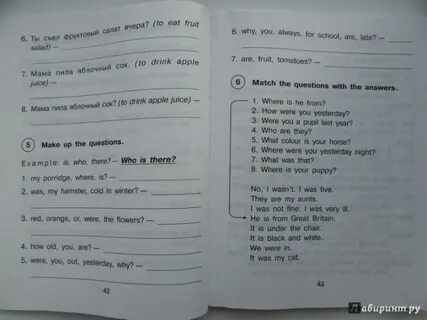 6. Ты съел фруктовый салат вчера? (to eat fruit
salad) —
7. Мама пила яблочный сок. (to drink apple
juice) —
8. Мама пила яблочный сок? (to drink apple juice) —
5 Make up the questions.
Example: is, who, there? – Who is there?
1. my porridge, where, is? —
2. was, my hamster, cold in winter? —
3. red, orange, or, were, the flowers? —
4. how old, you, are? —
5. were, you, out, yesterday, why? —
42
6. why, you, always, for school, are, late? —
7. are, fruit, tomatoes? —
6 Match the questions with the answers.
1. Where is he from?
2. How were you yesterday?
3. Were you a pupil last year?
4. Who are they?
5. What colour is your horse?
6. Where were you yesterday night?
7. What was that?
8. Where is your puppy?
No, I wasn't. I was five.
They are my aunts.
I was not fine. I was very ill.
He is from Great Britain.
It is under the chair.
It is black and white.
We were in.
It was my cat.
43
Лабиринт.ру